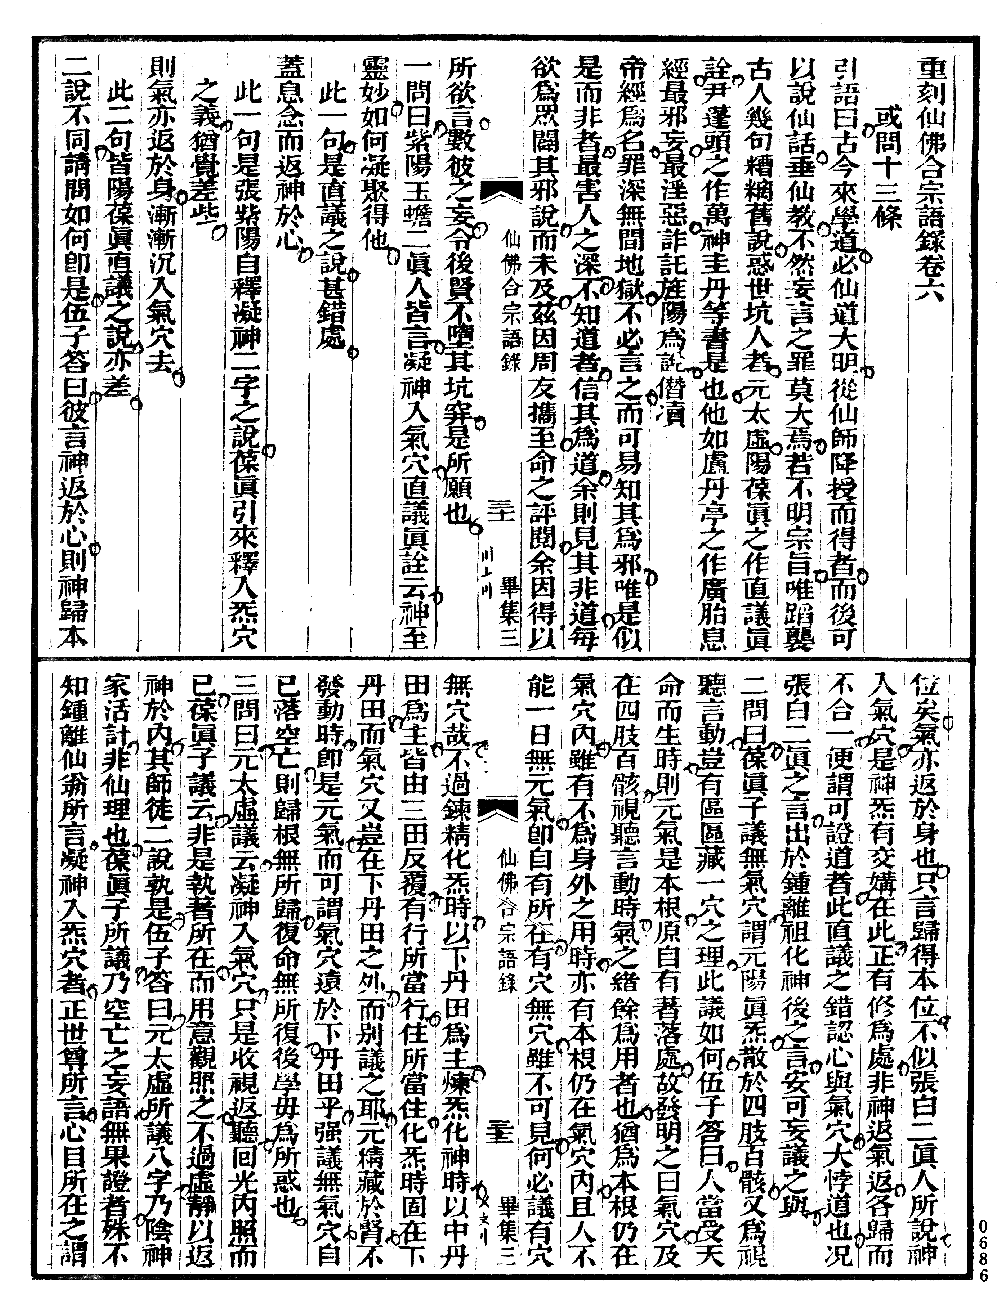 重刻仙佛合宗語錄卷六
或問十三條
引語曰古今來學道必仙道大明從仙師降授而得者而後可
以說仙話垂仙教不然妄言之罪莫大焉若不明宗旨唯蹈襲
古人幾句糟粕舊說惑世坑人者元太虛陽葆眞之作直議眞
詮尹蓬頭之作萬神圭丹等書是也他如盧丹亭之作廣胎息
經最邪妄最淫惡詐託旌陽爲說僭瀆
帝經爲名罪深無間地獄不必言之而可易知其爲邪唯是似
是而非者最害人之深不知道者信其爲道余則見其非道每
欲爲眾闢其邪說而未及茲因周友攜至命之評閱余因得以
仙佛合宗語錄
三十二
畢集三
所欲言數彼之妄令後賢不墮其坑穽是所願也
一問曰紫陽玉蟾二眞人皆言凝神入氣穴直議眞詮云神至
靈妙如何凝聚得他
此一句是直議之說甚錯處
蓋息念而返神於心
此一句是張紫陽自釋凝神二字之說葆眞引來釋入炁穴
之義猶覺差些
則氣亦返於身漸漸沉入氣穴去
此二句皆陽葆眞直議之說亦差
二說不同請問如何卽是伍子答曰彼言神返於心則神歸本
位矣氣亦返於身也只言歸得本位不似張白二眞人所說神
入氣穴是神炁有交媾在此正有修爲處非神返氣返各歸而
不合一便謂可證道者此直議之錯認心與氣穴大悖道也况
張白二眞之言出於鍾離祖化神後之言安可妄議之與
二問曰葆眞子議無氣穴謂元陽眞炁散於四肢百骸又爲視
聽言動豈有區區藏一穴之理此議如何伍子答曰人當受天
命而生時則元氣是本根原自有著落處故發明之曰氣穴及
在四肢百骸視聽言動時氣之緒餘爲用者也猶爲本根仍在
氣穴內雖有不爲身外之用時亦有本根仍在氣穴內且人不
能一日無元氣卽自有所在有穴無穴雖不可見何必議有穴
仙佛合宗語錄
三十三
畢集三
無穴哉不過鍊精化炁時以下丹田爲主煉炁化神時以中丹
田爲主皆由三田反覆有行所當行住所當住化炁時固在下
丹田而氣穴又豈在下丹田之外而別議之耶元精藏於腎不
發動時卽是元氣而可謂氣穴遠於下丹田乎强議無氣穴自
已落空亡則歸根無所歸復命無所復後學毋爲所惑也
三問曰元太虛議云凝神入氣穴只是收視返聽回光內照而
已葆眞子議云非是執著所在而用意觀照之不過虛靜以返
神於內其師徒二說孰是伍子答曰元太虛所議八字乃陰神
家活計非仙理也葆眞子所議乃空亡之妄語無果證者殊不
知鍾離仙翁所言凝神入炁穴者正世尊所言心目所在之謂
0686